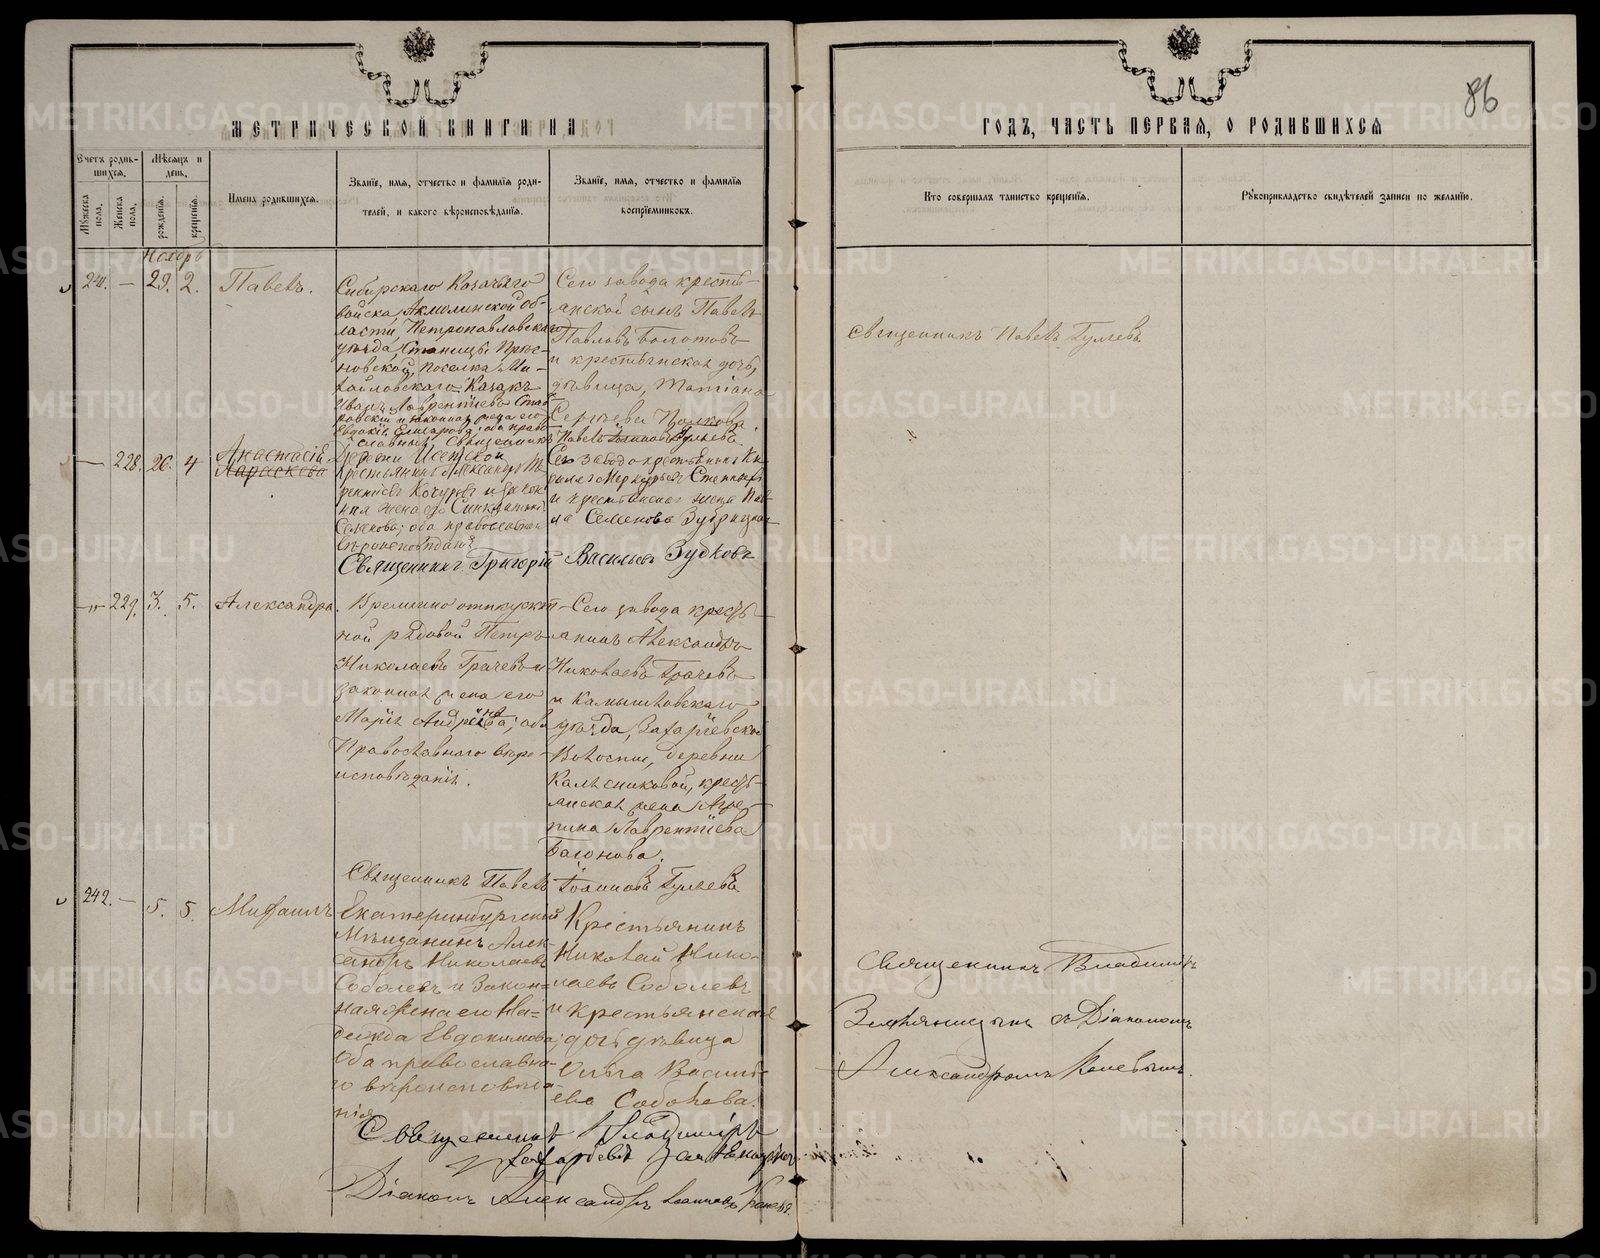 86
МЕТРИЧЕСКОЙ КНИГИ НА
ГОДЪ, ЧАСТЬ ПЕРВАЯ, О РОДИВШИХСЯ
Счетъ родив-
шихся.
Мѣсяцъ и
день.
Мужеска пола.
Женска пола.
рожденія.
крещенія.
Имена родившихся.
Званіе, имя, отчество и фамилія роди-
телей, и какого вѣроисповѣданія.
Званіе, имя, отчество и фамилія
воспріемниковъ.
Кто совершалъ таинство крещенія.
Рукоприкладство свидѣтелей записи по желанію.
Ноябрь
241. — 29. 2. Павелъ.
Сибирскаго Казачьяго
войска, Акмолинской об-
ласти, Петропавловскаго
уѣзда, Станицы Прѣс-
новской, поселка Ми-
хайловскаго Казакъ
Иванъ Лаврентіевъ
и законная жена его
Евдокія
Сего завода кресть-
янской сынъ Павелъ
Павловъ Болотовъ
и крестьянская дочь,
дѣвица, Татіана
Сергѣева
Священникъ
Павелъ Іоанновъ Гуляевъ
Священникъ Павелъ Гуляевъ
— 228. 26. 4 Анастасія
Параскева
Деревни Исетской
Крестьянинъ Александръ
и закон-
ная жена его
Семенова; оба православнаго
вѣроисповѣданія
Сего завода крестьянинъ
Меркурьевъ
и крестьянская жена
Семенова
Священникъ Григорій Васильевъ Зубковъ
—"— 229. 3. 5. Александра.
Временно отпускн-
ной рядовой Петръ
Николаевъ Грачевъ и
законная жена его
Марія Андреева; оба
Православнаго вѣро-
исповѣданія.
Сего завода кресть-
янинъ Александръ
Николаевъ Грачевъ
и Камышловскаго
уѣзда, Захарьевской
Волости, деревни
Калясниковой, кресть-
янская жена Агре-
пина Лаврентіева
Багонова.
Священникъ Павелъ Іоанновъ Гуляевъ
242. — 5. 5. Михаилъ
Екатеринбургскій
Мѣщанинъ Алек-
сандръ Николаевъ
Соболевъ и Закон-
ная жена его На-
дежда Евдокимова;
Оба православна-
го вѣроисповѣда-
нія
Крестьянинъ
Николай Нико-
лаевъ Соболевъ
и крестьянская
дочь дѣвица
Ольга Василь-
ева Соболева.
Священникъ Владиміръ
Діаконъ Александръ Іоанновъ
Священникъ Владиміръ
съ Діакономъ
Александромъ